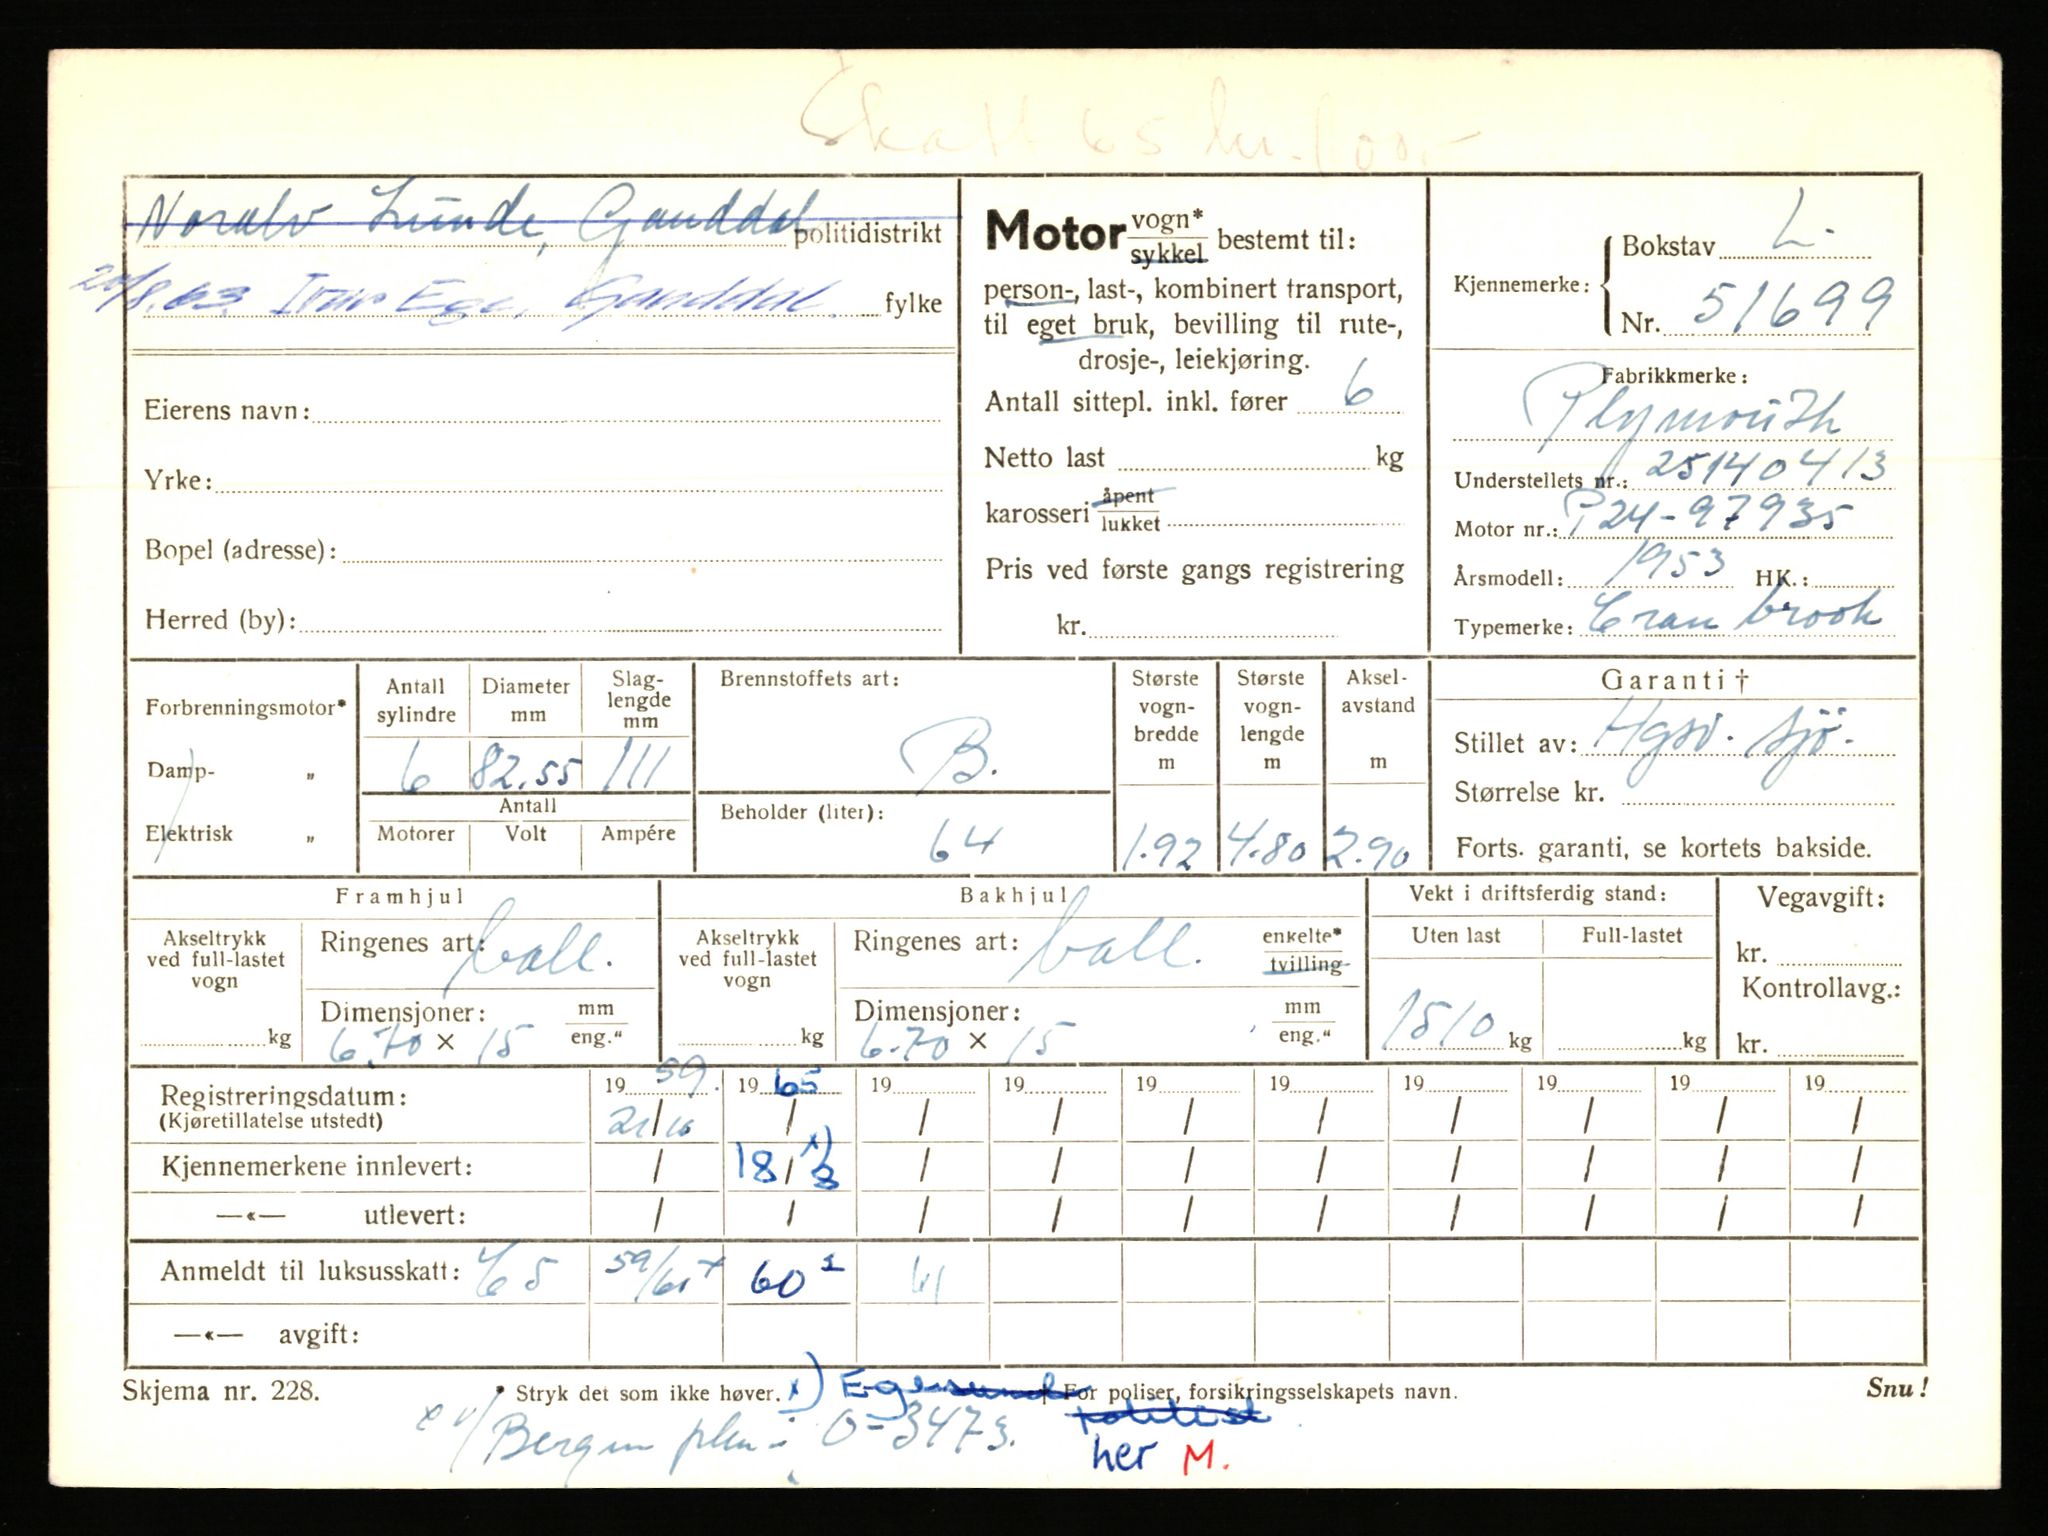 Skatt 65 kr. 100,-
Noralv Lunde, Ganddal politidistrikt
20/8.63. Ivar Ege, Ganddal. fylke
Eierens navn:
Yrke:
Bopel (adresse):
Herred (by):
Motor vogn* / sykkel bestemt til:
person-, last-, kombinert transport,
til eget bruk, bevilling til rute-,
drosje-, leiekjøring.
Antall sittepl. inkl. fører 6
Netto last kg
karosseri åpent / lukket
Pris ved første gangs registrering
kr.
Kjennemerke: Bokstav L.
Nr. 51699
Fabrikkmerke:
Plymouth
Understellets nr.: 25140413
Motor nr.: P24-97935
Årsmodell: 1953 HK.:
Typemerke: Cranbrook
Forbrenningsmotor*
Damp- „
Elektrisk „
Antall sylindre 6
Diameter mm 82.55
Slag-lengde mm 111
Antall
Motorer Volt Ampére
Brennstoffets art:
B.
Beholder (liter):
64
Største vogn-bredde m 1.92
Største vogn-lengde m 4.80
Aksel-avstand m 2.90
Garanti †
Stillet av: Hgsd. Sjö.
Størrelse kr.
Forts. garanti, se kortets bakside.
Framhjul
Akseltrykk ved full-lastet vogn
kg
Ringenes art: ball.
Dimensjoner: mm / eng."
6.70 × 15
Bakhjul
Akseltrykk ved full-lastet vogn
kg
Ringenes art: ball. enkelte* / tvilling
Dimensjoner: mm / eng."
6.70 × 15
Vekt i driftsferdig stand:
Uten last Full-lastet
1510 kg kg
Vegavgift:
kr.
Kontrollavg.:
kr.
Registreringsdatum: 19 59. 19 65 19 19 19 19 19 19 19 19
(Kjøretillatelse utstedt) 21/10 / / / / / / / / /
Kjennemerkene innlevert: / 18/8 x) / / / / / / / /
—«— utlevert: / / / / / / / / / /
Anmeldt til luksusskatt: 65 59/60 x 60 61
—«— avgift:
Skjema nr. 228. * Stryk det som ikke høver. x) Egersund † For poliser, forsikringsselskapets navn. Snu!
Bergen O-3473. politist
her M.